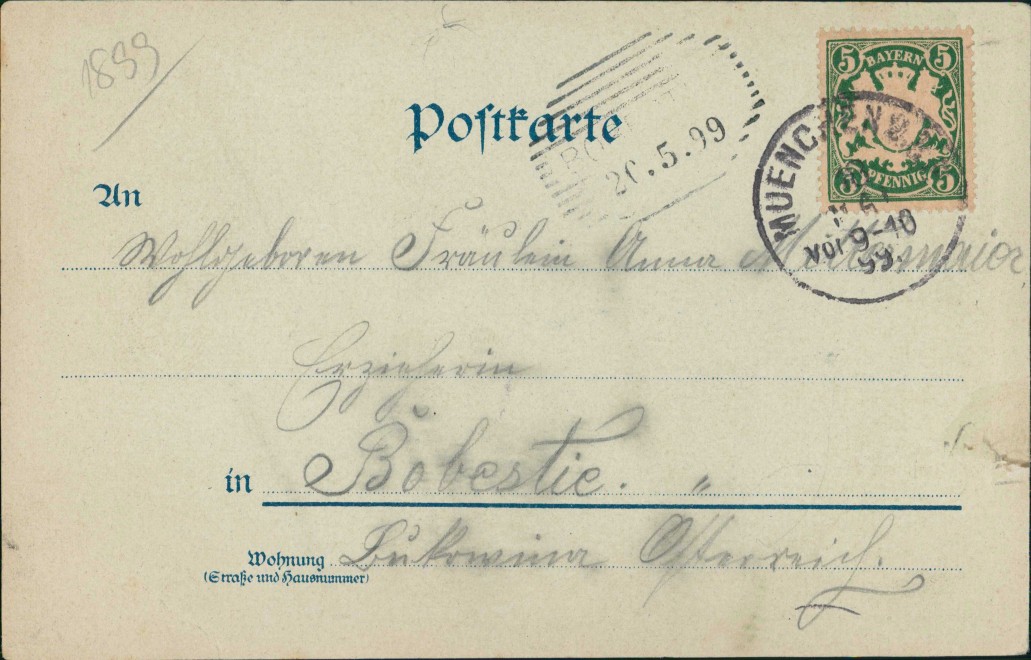 1899
5 BAYERN 5
5 PFENNIG 5
20.5.99
Postkarte
MUENCHEN
VOR 9-10
99.
An
Wohlgeboren Fräulein Anna
Erzieherin
in Bobestie. "
Wohnung Bukowina Österreich.
(Straße und Hausnummer)